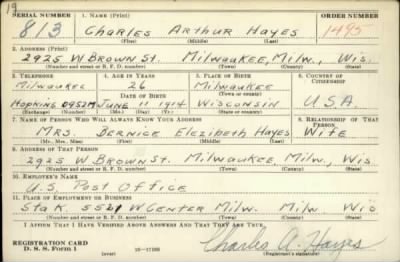 19
SERIAL NUMBER 1. NAME (Print) ORDER NUMBER
813 Charles Arthur Hayes 1495
(First) (Middle) (Last)
2. ADDRESS (Print)
2925 W Brown St. Milwaukee, Milw., Wis.
(Number and street or R. F. D. number) (Town) (County) (State)
3. TELEPHONE 4. AGE IN YEARS 5. PLACE OF BIRTH 6. COUNTRY OF CITIZENSHIP
Milwaukee 26 Milwaukee
DATE OF BIRTH (Town or county)
Hopkins 0952M June 11 1914 Wisconsin U.S.A.
(Exchange) (No.) (Mo.) (Day) (Yr.) (State or country)
7. NAME OF PERSON WHO WILL ALWAYS KNOW YOUR ADDRESS 8. RELATIONSHIP OF THAT PERSON
Mrs. Bernice Elezibeth Hayes Wife
(Mr., Mrs., Miss) (First) (Middle) (Last)
9. ADDRESS OF THAT PERSON
2925 W Brown St. Milwaukee, Milw., Wis
(Number and street or R. F. D. number) (Town) (County) (State)
10. EMPLOYER'S NAME
U.S. Post Office
11. PLACE OF EMPLOYMENT OR BUSINESS
Sta K. 5521 W Center Milw. Milw Wis
(Number and street or R. F. D. number) (Town) (County) (State)
I AFFIRM THAT I HAVE VERIFIED ABOVE ANSWERS AND THAT THEY ARE TRUE.
REGISTRATION CARD
D. S. S. Form 1 16—17105 Charles A. Hayes
(Registrant's signature)